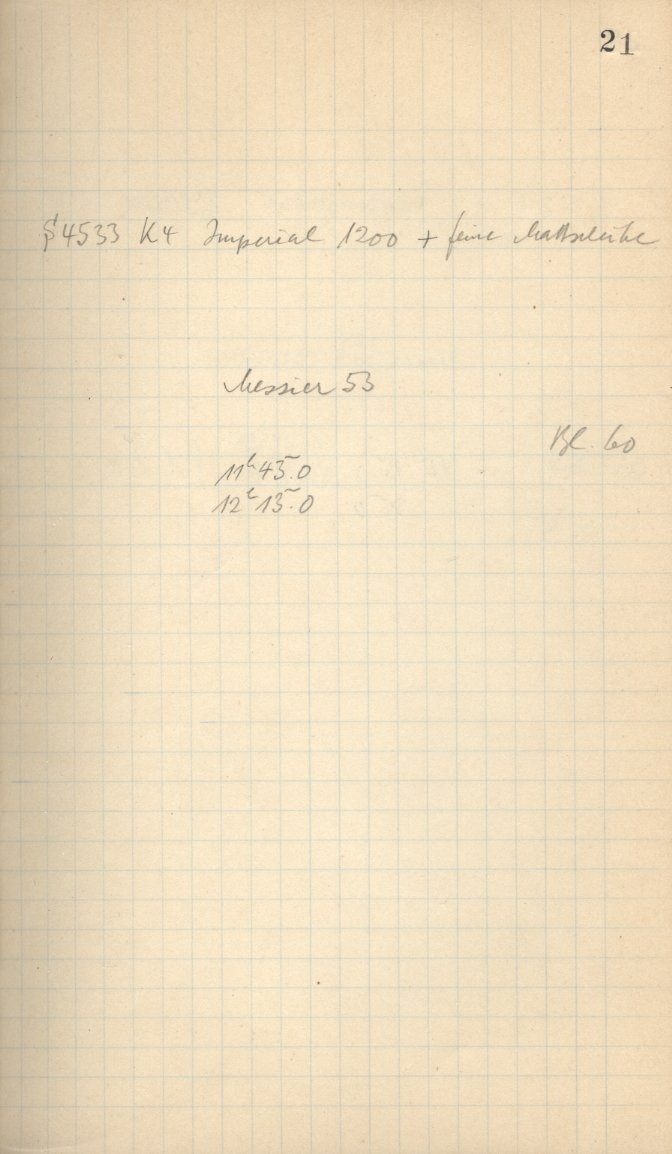 21
S4533 K4 Imperial 1200 + feine Mattscheibe
Messier 53
Bl. 60
11ʰ 45ᵐ.0
12ʰ 15ᵐ.0